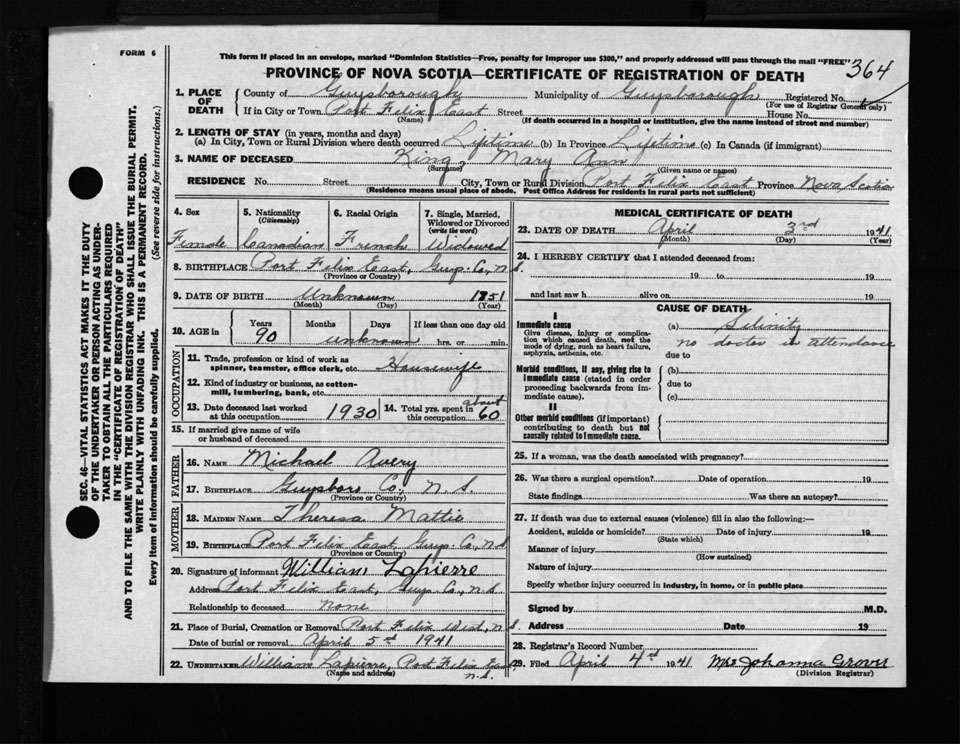 FORM 6
This form if placed in an envelope, marked "Dominion Statistics—Free, penalty for improper use $300," and properly addressed will pass through the mail "FREE"
364
PROVINCE OF NOVA SCOTIA—CERTIFICATE OF REGISTRATION OF DEATH
1. PLACE OF DEATH
County of Guysborough Municipality of Guysborough Registered No.
(For use of Registrar General only)
If in City or Town Port Felix East Street House No.
(Name) (If death occurred in a hospital or institution, give the name instead of street and number)
2. LENGTH OF STAY (in years, months and days)
(a) In City, Town or Rural Division where death occurred Liftime (b) In Province Lifetime (c) In Canada (if immigrant)
3. NAME OF DECEASED King, Mary Ann
(Surname) (Given name or names)
RESIDENCE No. Street City, Town or Rural Division Port Felix East Province Nova Scotia
(Residence means usual place of abode. Post Office Address for residents in rural parts not sufficient)
4. Sex 5. Nationality (Citizenship) 6. Racial Origin 7. Single, Married, Widowed or Divorced (write the word)
Female Canadian French Widowed
8. BIRTHPLACE Port Felix East, Guys. Co, N.S.
(Province or Country)
9. DATE OF BIRTH Unknown 1851
(Month) (Day) (Year)
10. AGE in Years Months Days If less than one day old
90 unknown hrs. or min.
OCCUPATION
11. Trade, profession or kind of work as spinner, teamster, office clerk, etc. Housewife
12. Kind of industry or business, as cotton-mill, lumbering, bank, etc.
13. Date deceased last worked at this occupation 1930 14. Total yrs. spent in this occupation about 60
15. If married give name of wife or husband of deceased
FATHER
16. NAME Michael Avery
17. BIRTHPLACE Guysboro Co, N.S.
(Province or Country)
MOTHER
18. MAIDEN NAME Theresa Mattie
19. BIRTHPLACE Port Felix East, Guys. Co, N.S
(Province or Country)
20. Signature of informant William Lapierre
Address Port Felix East, Guys. Co., N.S.
Relationship to deceased none
21. Place of Burial, Cremation or Removal Port Felix West, N.S.
Date of burial or removal April 5rd 1941
22. UNDERTAKER William Lapierre, Port Felix East
(Name and address) N.S.
MEDICAL CERTIFICATE OF DEATH
23. DATE OF DEATH April 3rd 1941
(Month) (Day) (Year)
24. I HEREBY CERTIFY that I attended deceased from:
19 to 19
and last saw h alive on 19
CAUSE OF DEATH
I
Immediate cause
Give disease, injury or complication which caused death, not the mode of dying, such as heart failure, asphyxia, asthenia, etc.
(a) Silinity
no doctor in attendance
due to
Morbid conditions, if any, giving rise to immediate cause (stated in order proceeding backwards from immediate cause).
(b)
due to
(c)
II
Other morbid conditions (if important) contributing to death but not causally related to immediate cause.
25. If a woman, was the death associated with pregnancy?
26. Was there a surgical operation? Date of operation 19
State findings Was there an autopsy?
27. If death was due to external causes (violence) fill in also the following:—
Accident, suicide or homicide? Date of injury 19
(State which)
Manner of injury
(How sustained)
Nature of injury
Specify whether injury occurred in industry, in home, or in public place
Signed by M.D.
Address Date 19
28. Registrar's Record Number
29. Filed April 4rd 1941 Mrs Johanna Grover
(Division Registrar)
SEC. 46—VITAL STATISTICS ACT MAKES IT THE DUTY
OF THE UNDERTAKER OR PERSON ACTING AS UNDER-
TAKER TO OBTAIN ALL THE PARTICULARS REQUIRED
IN THE "CERTIFICATE OF REGISTRATION OF DEATH"
AND TO FILE THE SAME WITH THE DIVISION REGISTRAR WHO SHALL ISSUE THE BURIAL PERMIT.
WRITE PLAINLY WITH UNFADING INK. THIS IS A PERMANENT RECORD.
Every item of information should be carefully supplied. (See reverse side for instructions.)